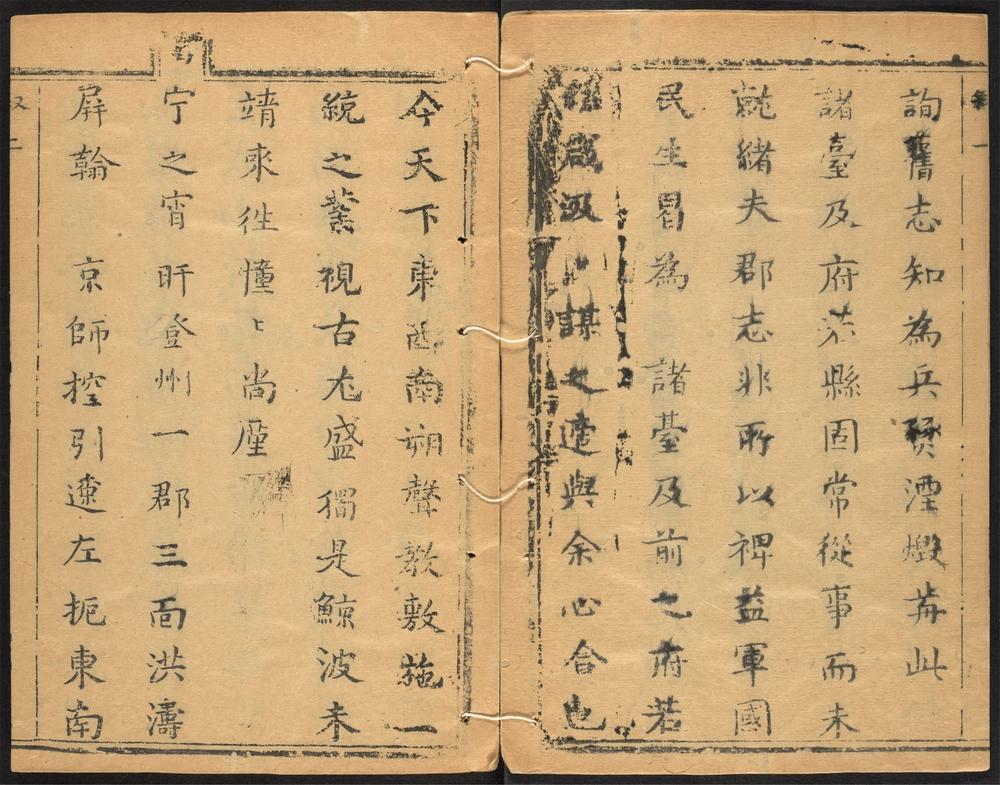 叙一
詢舊志知為兵燹湮燬前此
諸臺及府若縣固常從事而未
就緒夫郡志非所以裨益軍國
民生曷為 諸臺及前之府若
咸汲謀之與余心合也
今天下東西南朔聲教敷施一
統之業視古尤盛獨是鯨波未
靖來往憧〻尚廑
宁之宵旰登州一郡三面洪濤
屏翰 京師控引遼左扼東南
叙二